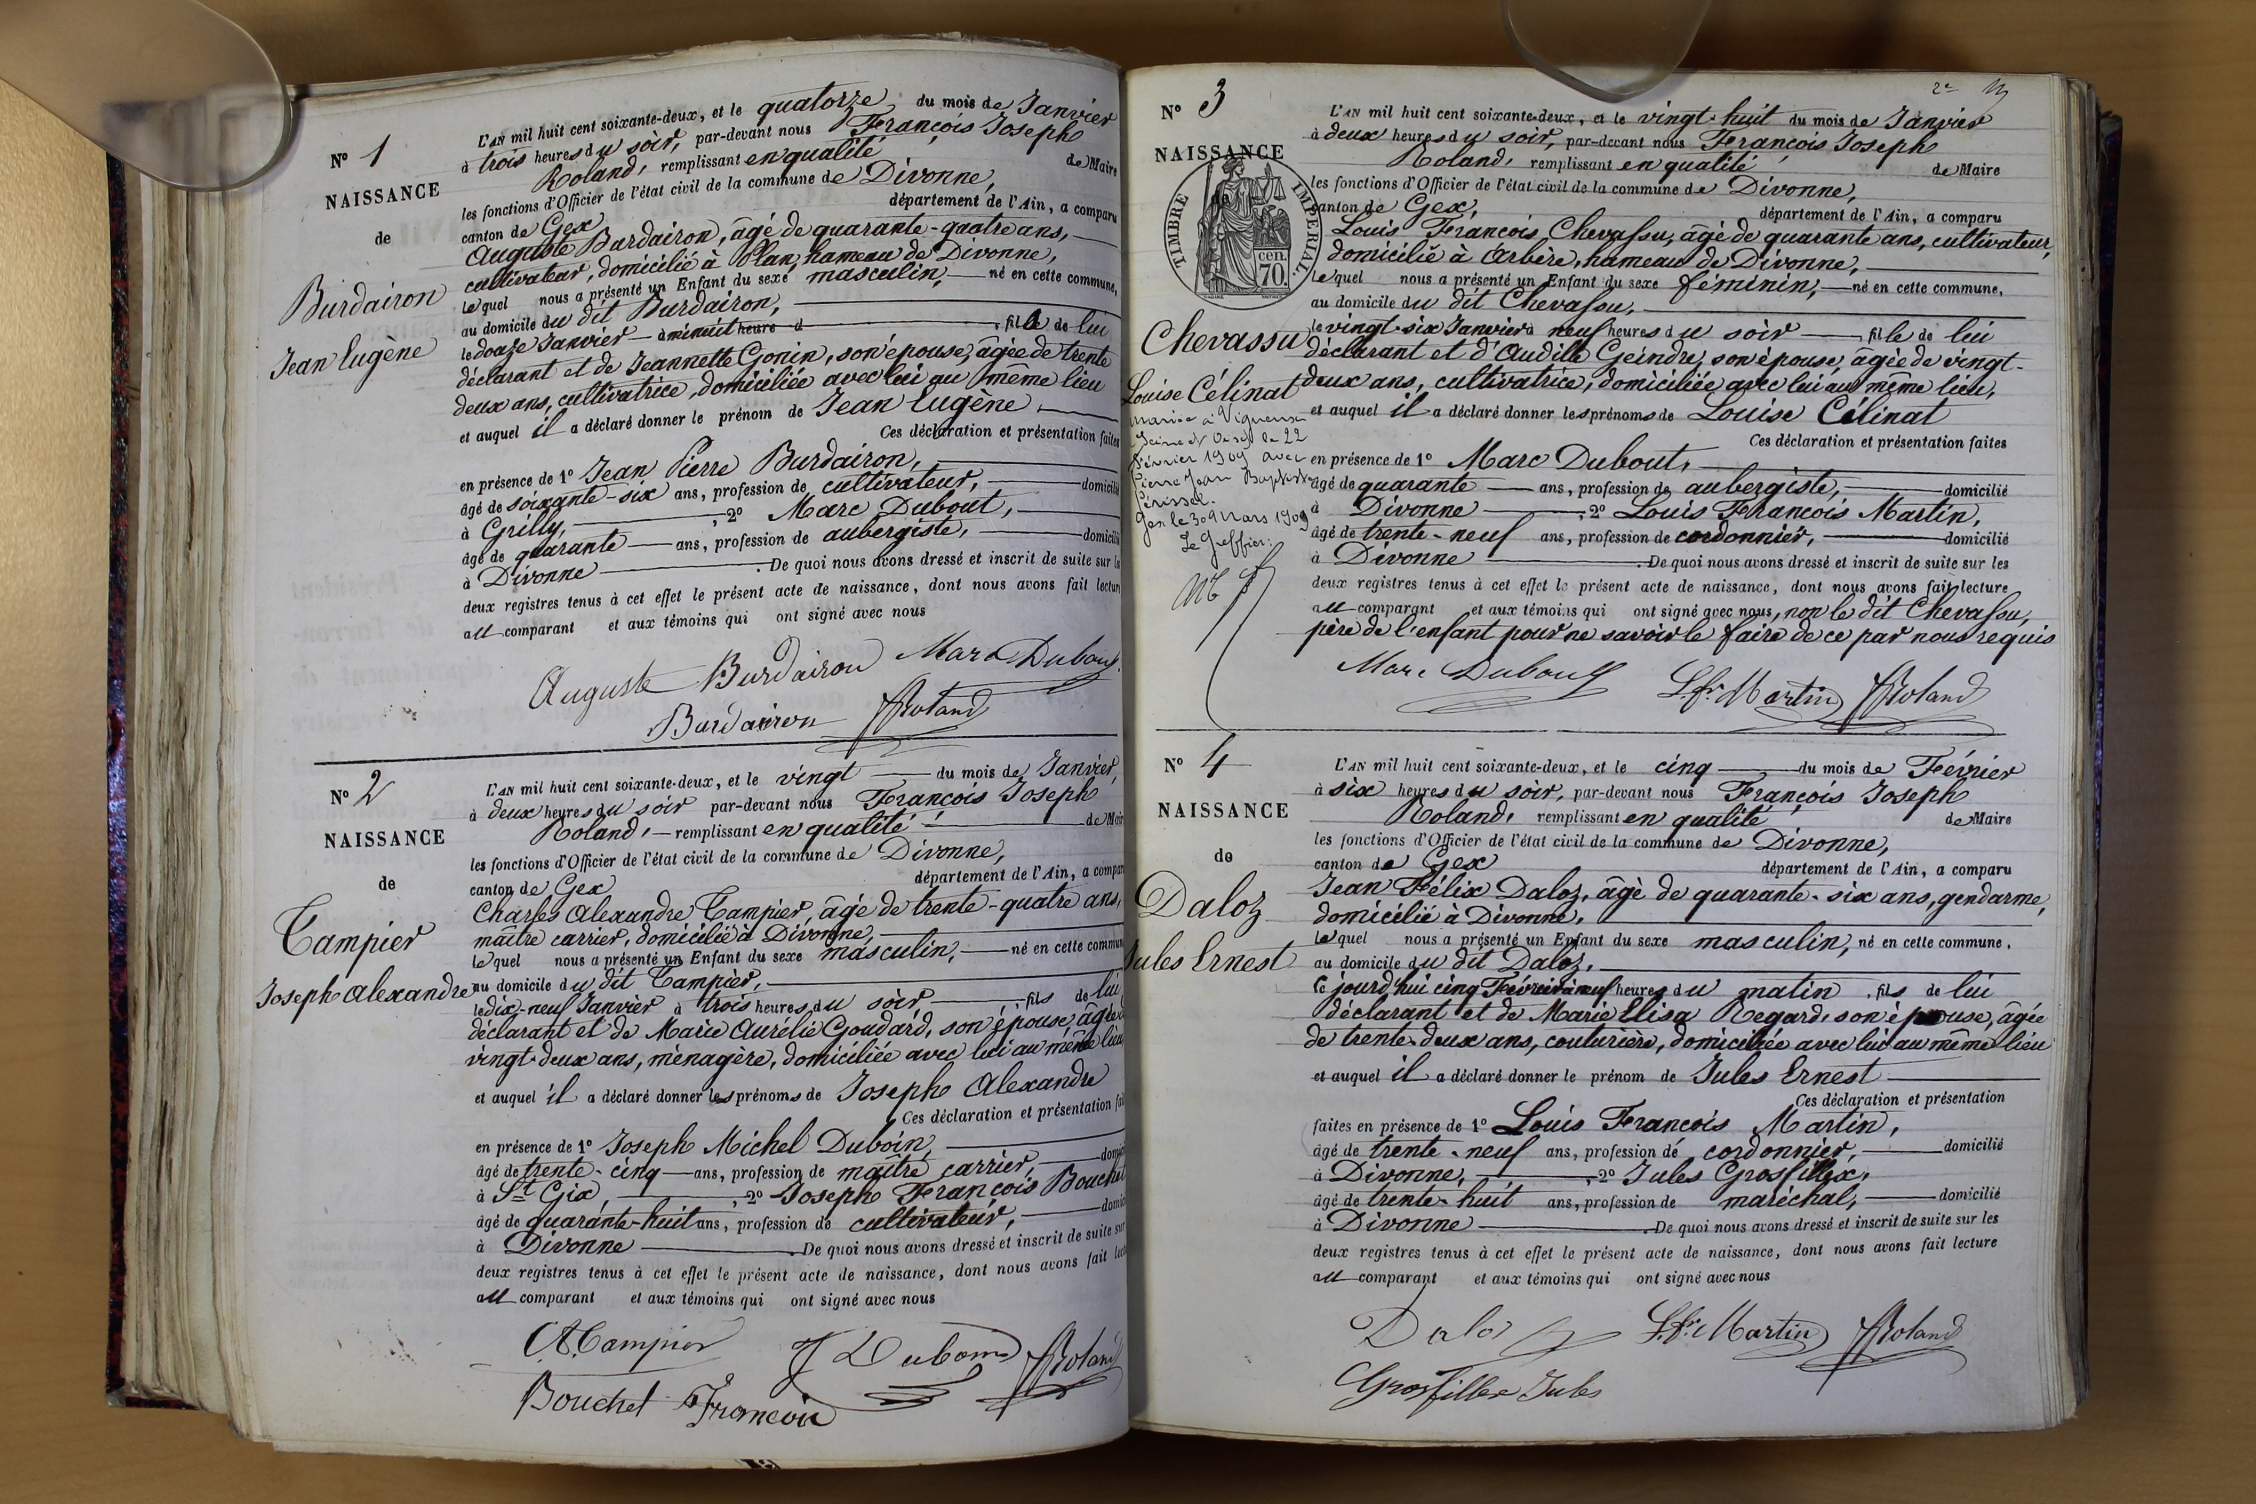 N° 1
NAISSANCE
de
Burdairon
Jean Eugène
L'AN mil huit cent soixante-deux, et le quatorze du mois de Janvier
à trois heures du soir, par-devant nous François Joseph
Roland, remplissant en qualité de Maire
les fonctions d'Officier de l'état civil de la commune de Divonne,
canton de Gex département de l'Ain, a comparu
Auguste Burdairon, âgé de quarante-quatre ans,
cultivateur, domicilié à Plan, hameau de Divonne,
lequel nous a présenté un Enfant du sexe masculin, né en cette commune,
au domicile du dit Burdairon,
le douze Janvier à minuit heure d fils de lui
déclarant et de Jeannette Gonin, son épouse, âgée de trente
deux ans, cultivatrice, domiciliée avec lui au même lieu
et auquel il a déclaré donner le prénom de Jean Eugène,
Ces déclaration et présentation faites
en présence de 1° Jean Pierre Burdairon,
âgé de soixante-six ans, profession de cultivateur, domicilié
à Grilly, 2° Marc Dubout,
âgé de quarante ans, profession de aubergiste, domicilié
à Divonne. De quoi nous avons dressé et inscrit de suite sur les
deux registres tenus à cet effet le présent acte de naissance, dont nous avons fait lecture
au comparant et aux témoins qui ont signé avec nous
Auguste Burdairon Marc Dubout
Burdairon Roland
N° 2
NAISSANCE
de
Tampier
Joseph Alexandre
L'AN mil huit cent soixante-deux, et le vingt du mois de Janvier,
à deux heures du soir par-devant nous François Joseph
Roland, remplissant en qualité de Maire
les fonctions d'Officier de l'état civil de la commune de Divonne,
canton de Gex département de l'Ain, a comparu
Charles Alexandre Tampier, âgé de trente-quatre ans,
maître carrier, domicilié à Divonne,
lequel nous a présenté un Enfant du sexe masculin, né en cette commune
au domicile du dit Tampier,
le dix-neuf Janvier à trois heures du soir, fils de lui
déclarant et de Marie Aurélie Goudard, son épouse, âgée
vingt-deux ans, ménagère, domiciliée avec lui au même lieu
et auquel il a déclaré donner les prénoms de Joseph Alexandre
Ces déclaration et présentation fai
en présence de 1° Joseph Michel Duboin,
âgé de trente-cinq ans, profession de maître carrier, domici
à St Gix, 2° Joseph François Bouchet
âgé de quarante-huit ans, profession de cultivateur, domici
à Divonne. De quoi nous avons dressé et inscrit de suite sur
deux registres tenus à cet effet le présent acte de naissance, dont nous avons fait lectu
au comparant et aux témoins qui ont signé avec nous
A. Tampier J Duboin Roland
Bouchet François
2e
N° 3
NAISSANCE
de
TIMBRE IMPÉRIAL.
70. cen.
Chevassu
Louise Célinat
mariée à Vigneux
Seine et Oise le 22
Février 1909 avec
Pierre Jean Baptiste
Gex le 30 Mars 1909
Le Greffier:
L'AN mil huit cent soixante-deux, et le vingt-huit du mois de Janvier
à deux heures du soir, par-devant nous François Joseph
Roland, remplissant en qualité de Maire
les fonctions d'Officier de l'état civil de la commune de Divonne,
canton de Gex, département de l'Ain, a comparu
Louis François Chevassu, âgé de quarante ans, cultivateur,
domicilié à Arbère, hameau de Divonne,
lequel nous a présenté un Enfant du sexe féminin, né en cette commune,
au domicile du dit Chevassu,
le vingt-six Janvier à neuf heures du soir fille de lui
déclarant et d'Audille Geindre, son épouse, âgée de vingt-
deux ans, cultivatrice, domiciliée avec lui au même lieu,
et auquel il a déclaré donner les prénoms de Louise Célinat
Ces déclaration et présentation faites
en présence de 1° Marc Dubout,
âgé de quarante ans, profession de aubergiste, domicilié
à Divonne, 2° Louis François Martin,
âgé de trente-neuf ans, profession de cordonnier, domicilié
à Divonne. De quoi nous avons dressé et inscrit de suite sur les
deux registres tenus à cet effet le présent acte de naissance, dont nous avons fait lecture
au comparant et aux témoins qui ont signé avec nous, non le dit Chevassu,
père de l'enfant pour ne savoir le faire de ce par nous requis
Marc Dubout L. fs Martin Roland
N° 4
NAISSANCE
de
Daloz
Jules Ernest
L'AN mil huit cent soixante-deux, et le cinq du mois de Février
à six heures du soir, par-devant nous François Joseph
Roland, remplissant en qualité de Maire
les fonctions d'Officier de l'état civil de la commune de Divonne,
canton de Gex département de l'Ain, a comparu
Jean Félix Daloz, âgé de quarante-six ans, gendarme,
domicilié à Divonne,
lequel nous a présenté un Enfant du sexe masculin, né en cette commune,
au domicile du dit Daloz,
ce jourd'hui cinq Février à neuf heures du matin, fils de lui
déclarant et de Marie Elisa Regard, son épouse, âgée
de trente-deux ans, couturière, domiciliée avec lui au même lieu
et auquel il a déclaré donner le prénom de Jules Ernest
Ces déclaration et présentation
faites en présence de 1° Louis François Martin,
âgé de trente-neuf ans, profession de cordonnier, domicilié
à Divonne, 2° Jules Grosfillex,
âgé de trente-huit ans, profession de maréchal, domicilié
à Divonne. De quoi nous avons dressé et inscrit de suite sur les
deux registres tenus à cet effet le présent acte de naissance, dont nous avons fait lecture
au comparant et aux témoins qui ont signé avec nous
Daloz L. fs Martin Roland
Grosfillex Jules